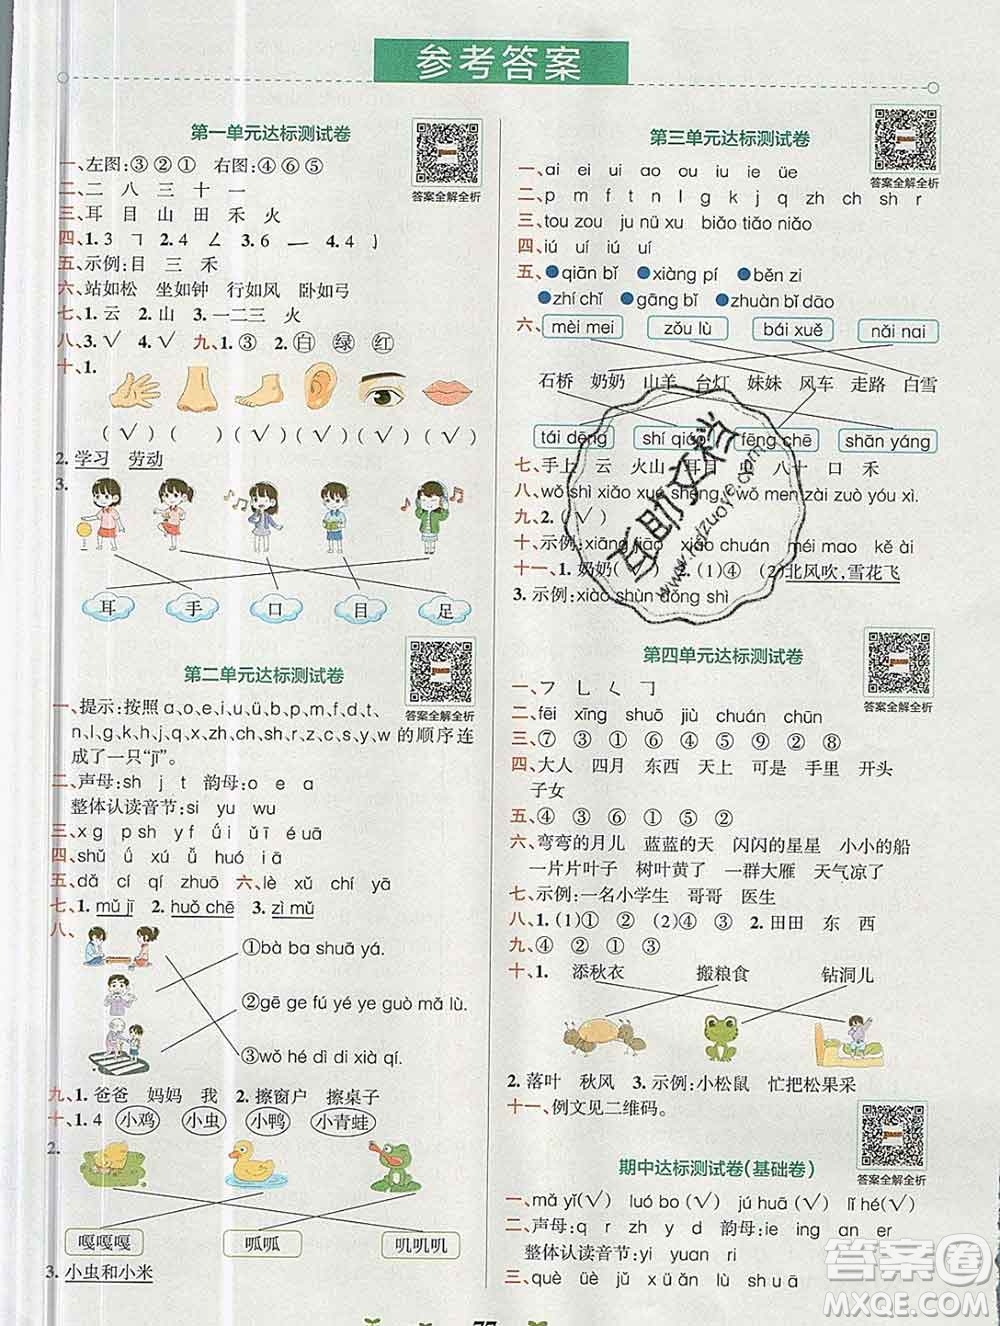 参考答案
第一单元达标测试卷
答案全解全析
一、左图:③②① 右图:④⑥⑤
二、二 八 三 十 一
三、耳 目 山 田 禾 火
四、1.3 ㇕ 2.4 ㄥ 3.6 一 4.4 亅
五、示例:目 三 禾
六、站如松 坐如钟 行如风 卧如弓
七、1.云 2.山 3.一二三 火
八、3.√ 4.√ 九、1.③ 2.白 绿 红
十、1.
(√) ( ) (√) (√) (√) (√)
2.学习 劳动
3.
耳 手 口 目 足
第二单元达标测试卷
答案全解全析
一、提示:按照ɑ、o、e、i、u、ü、b、p、m、f、d、t、
n、l、g、k、h、j、q、x、zh、ch、sh、r、z、c、s、y、w的顺序连
成了一只“jī”。
二、声母:sh j t 韵母:e ɑ o
整体认读音节:si yu wu
三、x g p sh y f ǘ ǔ ī é uā
四、shǔ ǘ ǚ huó iā
五、dǎ chí qí zhuō 六、lè xǔ chí yā
七、1.mǔ jī 2.huǒ chē 3.zì mǔ
八、
①bà ba shuā yá.
②gē ge fú yé ye guò mǎ lù.
③wǒ hé dì di xià qí.
九、1.爸爸 妈妈 我 2.擦窗户 擦桌子
十、1.4 小鸡 小虫 小鸭 小青蛙
2.
嘎嘎嘎 呱呱 叽叽叽
3.小虫和小米
第三单元达标测试卷
答案全解全析
一、ai ei ui ao ou iu ie üe
二、p m f t n l g k j q zh ch sh r
三、tou zou ju nü xu biǎo tiǎo niǎo
四、iú uí iú uí
五、●qiān bǐ ●xiàng pí ●běn zi
●zhí chǐ ●gāng bǐ ●zhuàn bǐ dāo
六、mèi mei zǒu lù bái xuě nǎi nai
石桥 奶奶 山羊 台灯 妹妹 风车 走路 白雪
tái dēng shí qiáo fēng chē shān yáng
七、手上 云 火山 耳目 山 八十 口 禾
八、wǒ shì xiǎo xué shēng, wǒ men zài zuò yóu xì.
九、2.(√)
十、示例:xiāng jiāo xiǎo chuán méi mao kě ài
十一、1.奶奶(√) 2.(1)④ (2)北风吹,雪花飞
3.示例:xiào shùn dǒng shì
第四单元达标测试卷
答案全解全析
一、㇇ ㇄ ㇛ ㇆
二、fēi xīng shuō jiù chuán chūn
三、⑦ ③ ① ④ ⑤ ② ⑥ ⑧
四、大人 四月 东西 天上 可是 手里 开头
子女
五、④ ③ ⑥ ① ⑤ ②
六、弯弯的月儿 蓝蓝的天 闪闪的星星 小小的船
一片片叶子 树叶黄了 一群大雁 天气凉了
七、示例:一名小学生 哥哥 医生
八、1.(1)① ② (2)④ ③ 2.田田 东 西
九、④ ② ① ③
十、1. 添秋衣 搬粮食 钻洞儿
2.落叶 秋风 3.示例:小松鼠 忙把松果采
十一、例文见二维码。
期中达标测试卷(基础卷)
答案全解全析
一、mǎ yǐ(√) luó bo(√) jú huā(√) lǐ hé(√)
二、声母:q r zh y d 韵母:ie ing an er
整体认读音节:yi yuan ri
三、què üè jǔ x ǔ ǎn lǔ sh u ā
77
互助文档
www.hdzuoye.com
答案圈
MXQE.COM